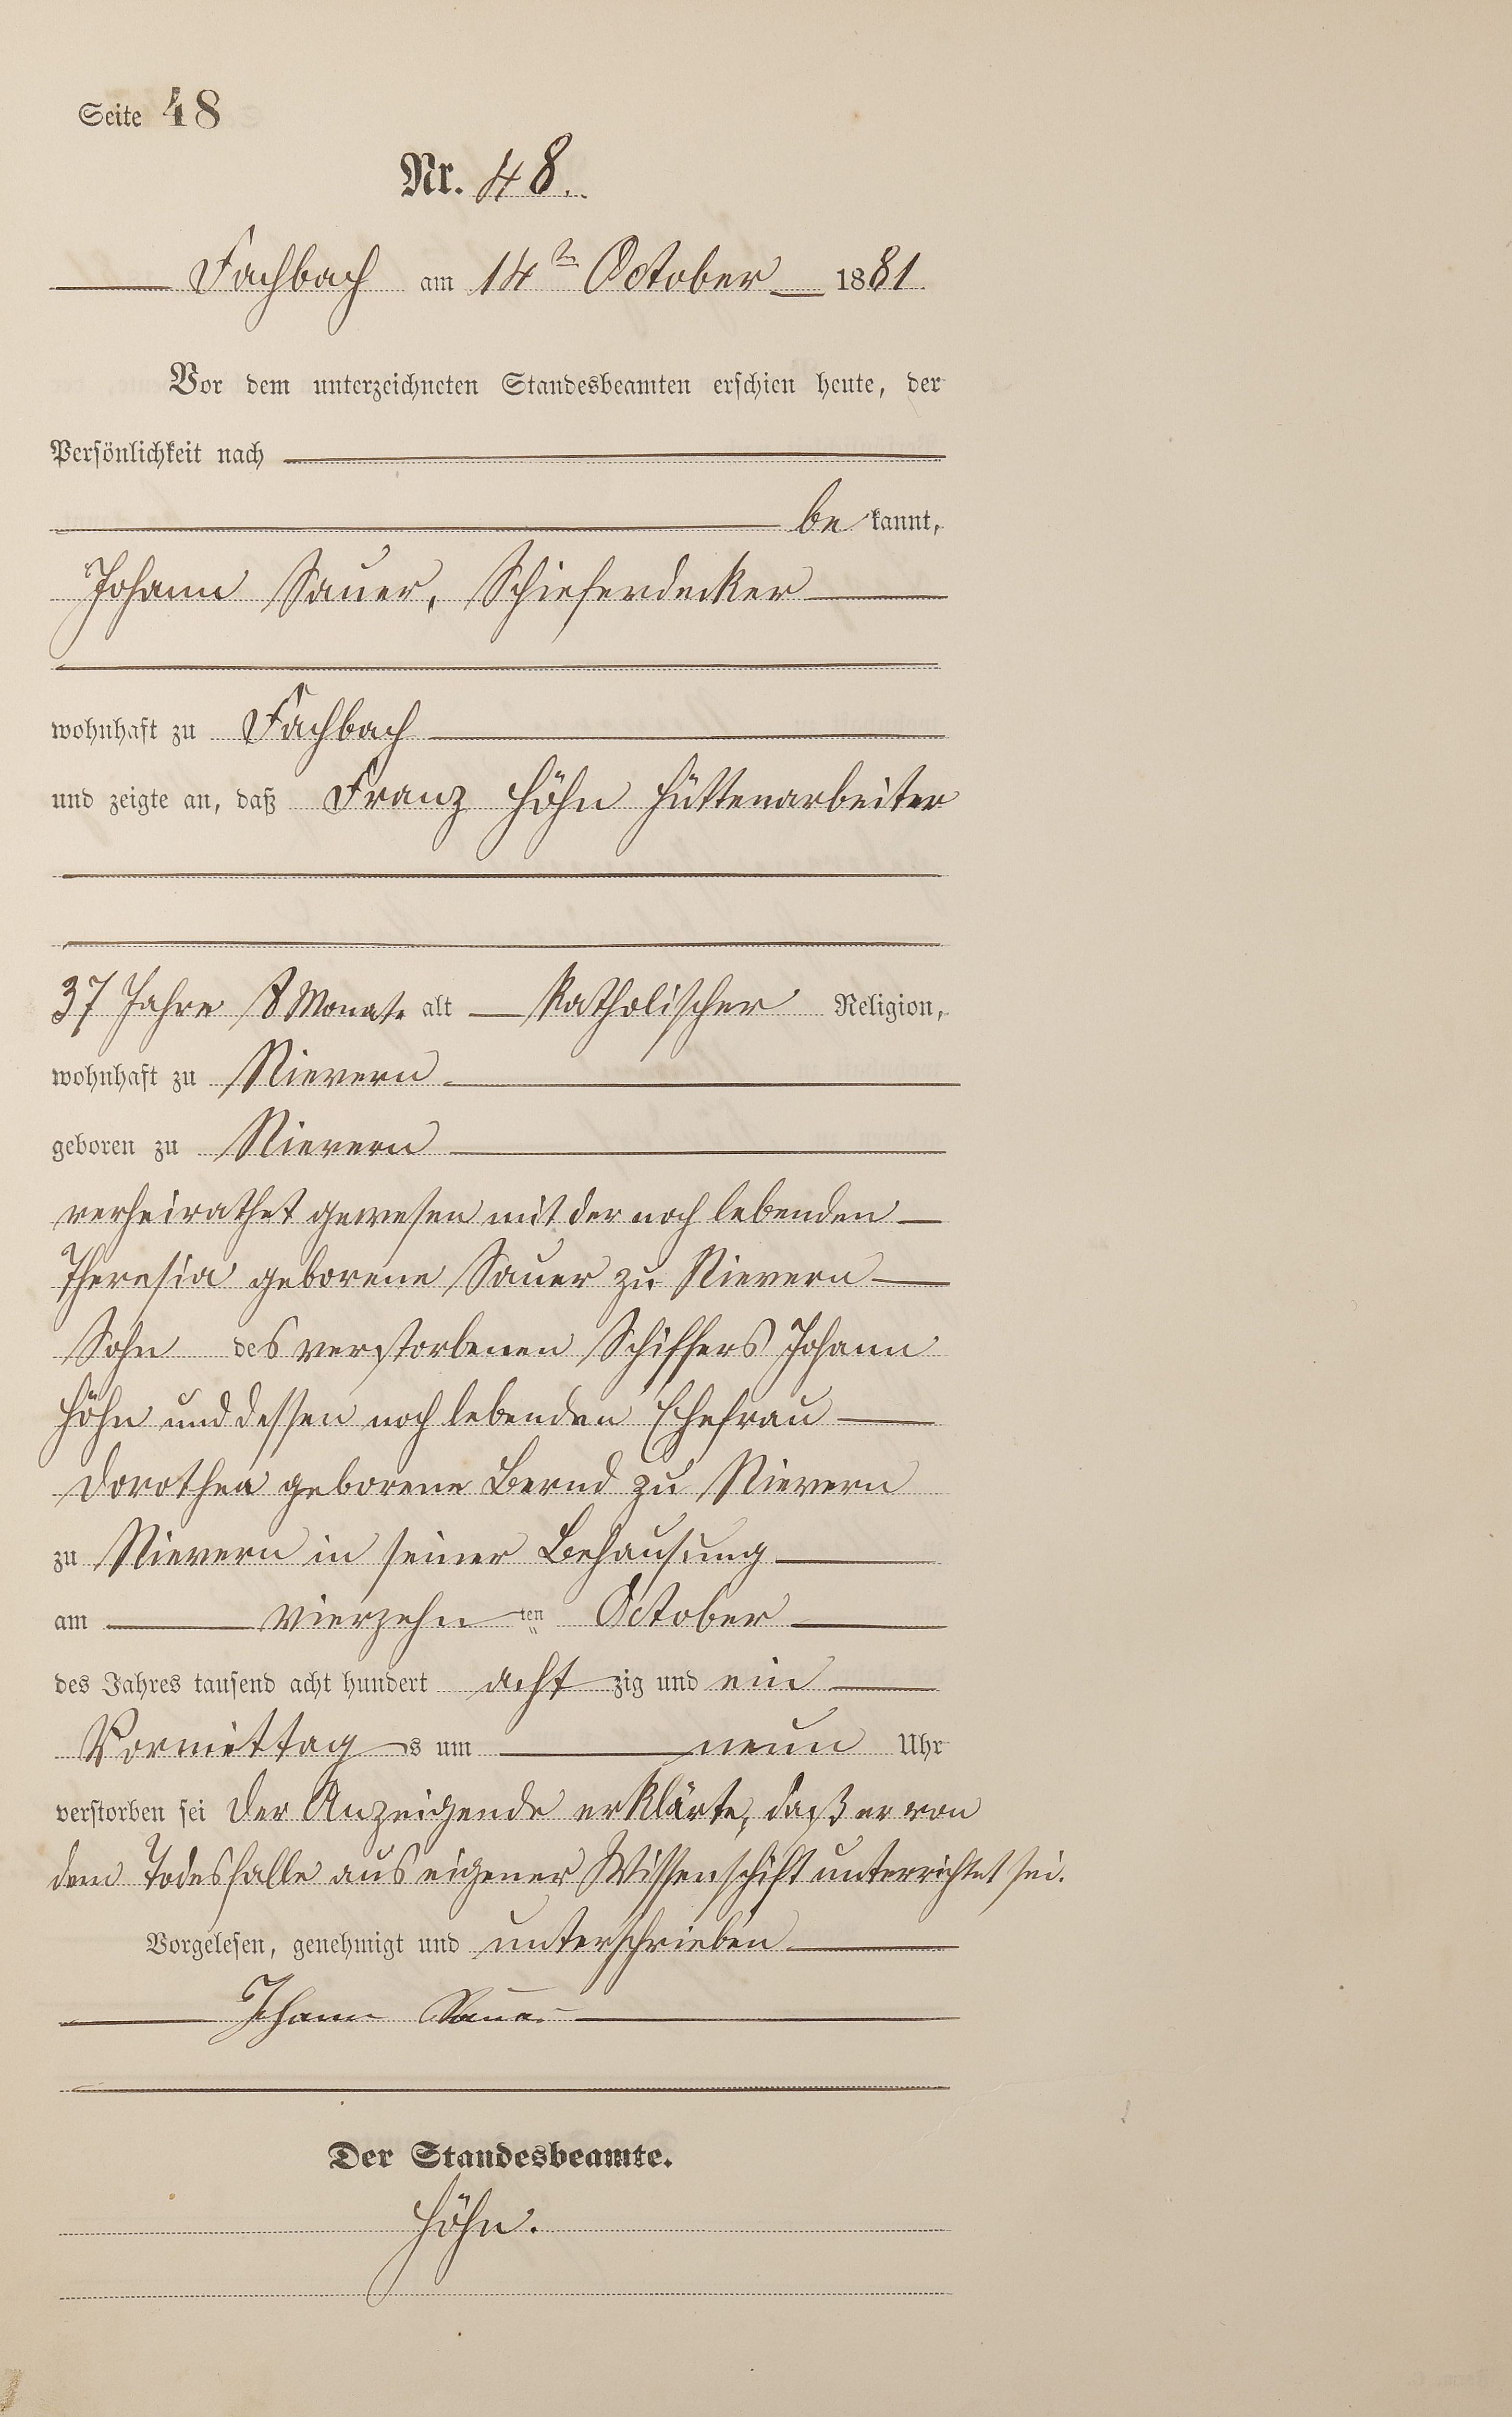 Seite 48
Nr. 48.
Fachbach am 14ten October 1881.
Vor dem unterzeichneten Standesbeamten erschien heute, der
Persönlichkeit nach
be kannt,
Johann Sauer, Schieferdecker
wohnhaft zu Fachbach
und zeigte an, daß Franz Höhn Hüttenarbeiter
37 Jahre 8 Monate alt katholischer Religion,
wohnhaft zu Nievern
geboren zu Nievern
verheirathet gewesen mit der noch lebenden
Theresia geborene Sauer zu Nievern
Sohn des verstorbenen Schiffers Johann
Höhn und dessen noch lebenden Ehefrau
Dorothea geborene Bernd zu Nievern
zu Nievern in seiner Behausung
am vierzehn ten October
des Jahres tausend acht hundert acht zig und ein
Vormittag s um neun Uhr
verstorben sei der Anzeigende erklärte, daß er von
dem Todesfalle aus eigener Wissenschaft unterrichtet sei.
Vorgelesen, genehmigt und unterschrieben
Johann Sauer
Der Standesbeamte.
Höhn.